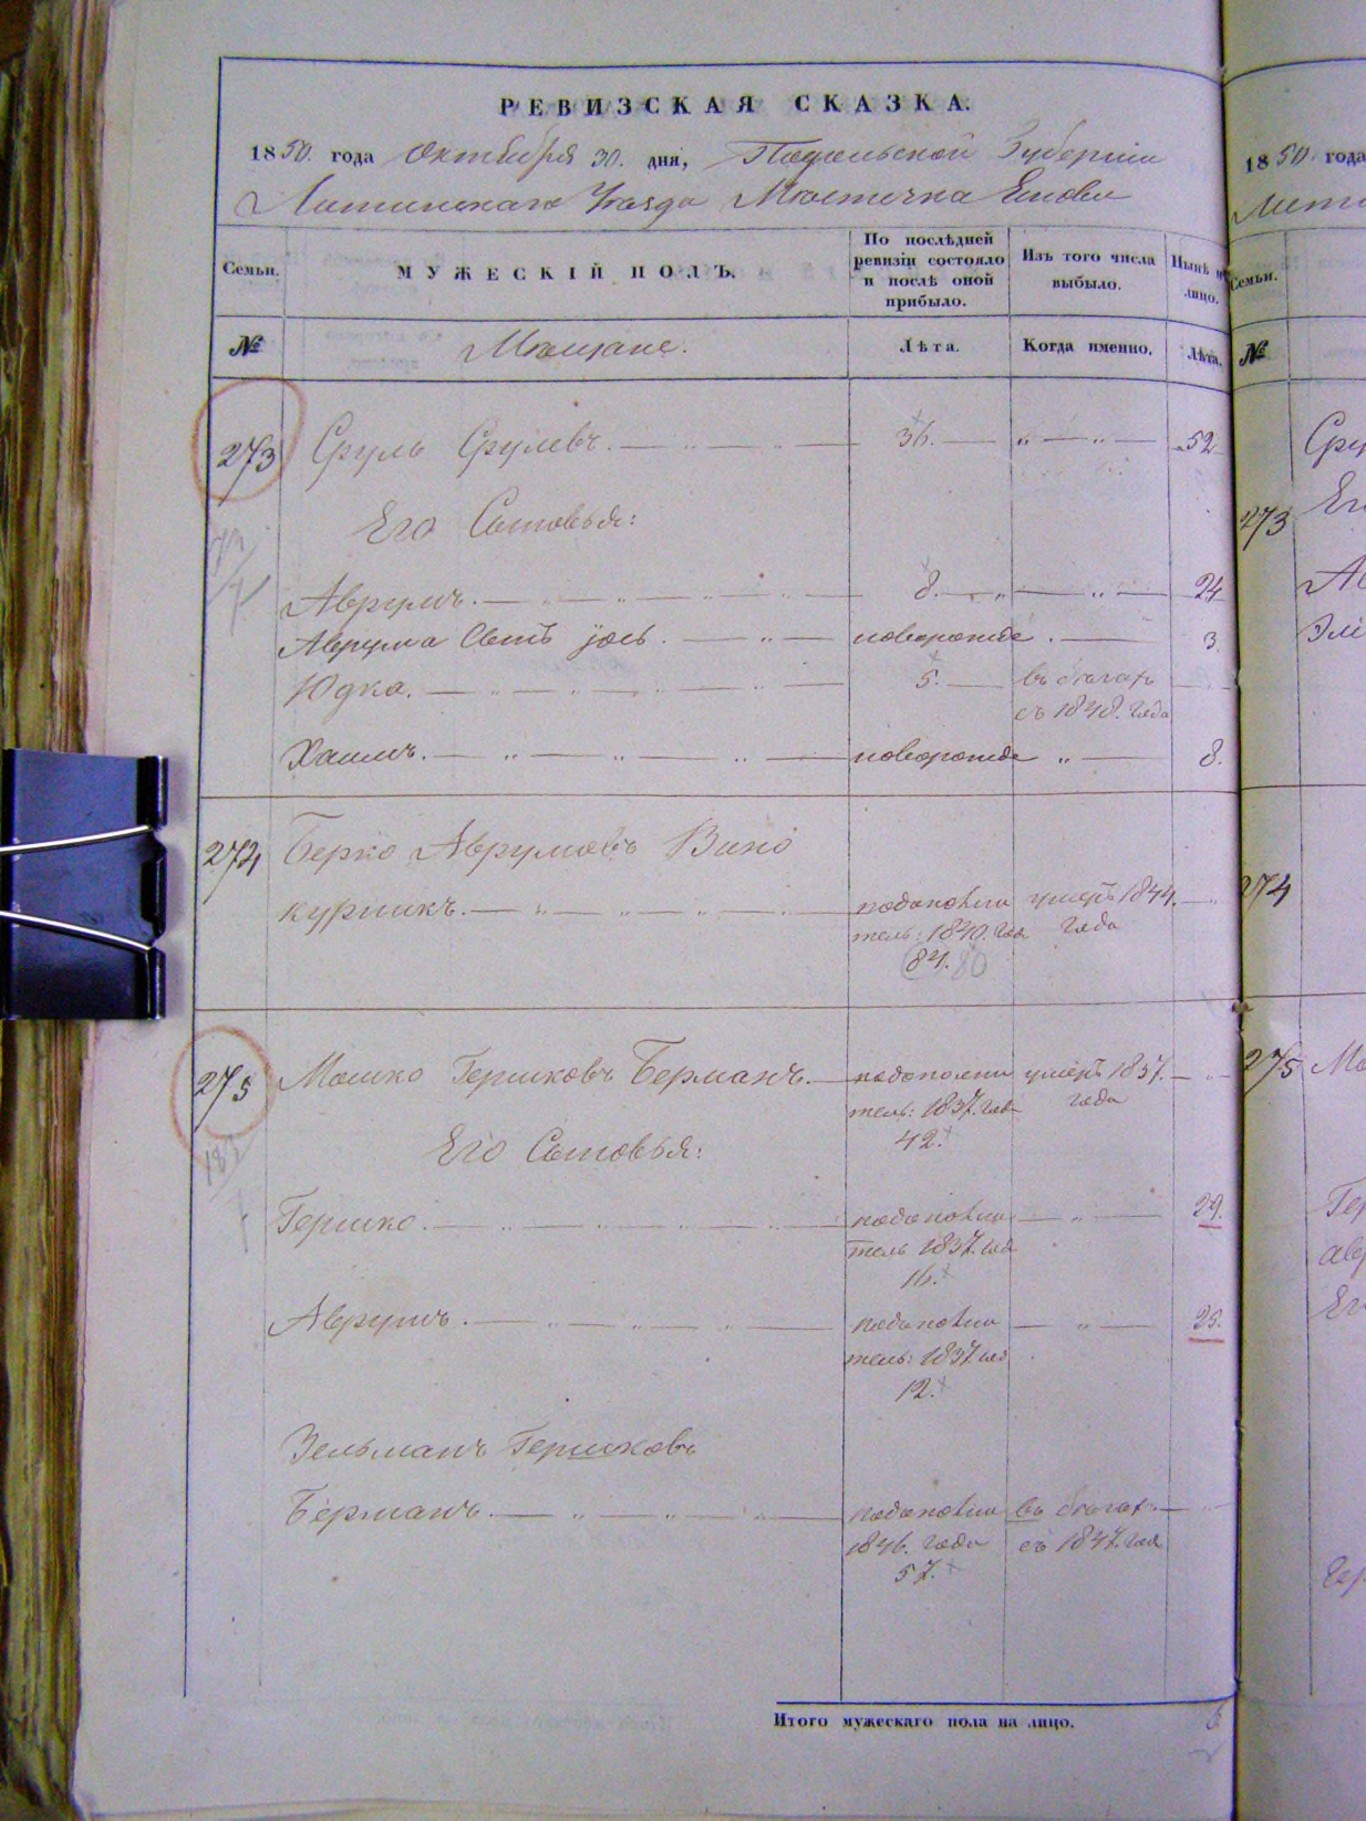 РЕВИЗСКАЯ СКАЗКА.
1850. года Октября 30. дня, Подольской Губернии
Литинскаго Уезда Местечка
Семьи.
МУЖЕСКІЙ ПОЛЪ.
По послѣдней ревизіи состояло и послѣ оной прибыло.
Изъ того числа выбыло.
Нынѣ
лицо.
№
Мещане.
Лѣта.
Когда именно.
Лѣта.
273 Сруль Срулевъ. 36. 52
Его Сыновья:
Аврумъ. 8. 24
Аврума Сынъ новорожде. 3.
Юдка. 5. въ бегахъ
съ 1848. года
Хаимъ. новорожде 8.
274 Берко Аврумовъ Вино
куршикъ. подополни умеръ 1844.
тель: 1840. года
84. 80
275 Мошко Гершковъ Берманъ. подополни умеръ 1837.
тель: 1837. года года
42.
Его Сыновья:
Гершко. подополни 29.
тель 1837. года
16.
Аврумъ. подополни 25.
тель: 1837. года
12.
Зельманъ Гершковъ
Берманъ. подополни въ бегахъ
1846. года съ 1847. года
57.
Итого мужескаго пола на лицо. 6
1850 года
Семьи.
№
273
274
275